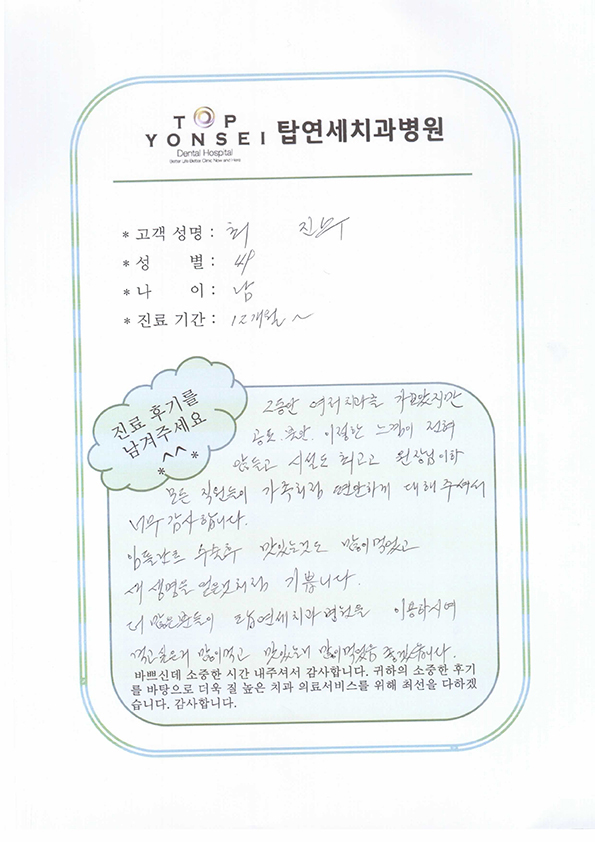 TOP
YONSEI 탑연세치과병원
Dental Hospital
Better Life Better Clinic Now and Here
* 고객 성명 : 최 진
* 성 별 : 49
* 나 이 : 남
* 진료 기간 : 12개월 ~
진료 후기를
남겨주세요
*^^*
그동안 여러치과를 가보았지만
공포. 불안. 이질한 느낌이 전혀
안들고 시설도 최고고 원장님이하
모든 직원들이 가족처럼 편안하게 대해주셔서
너무 감사합니다.
임플란트 수술후 맛있는것도 많이먹었고
새생명을 얻은것처럼 기쁩니다.
더 많은분들이 탑연세치과병원을 이용하시여
먹고싶은거 많이먹고 맛있는거 많이먹었음 좋겠습니다.
바쁘신데 소중한 시간 내주셔서 감사합니다. 귀하의 소중한 후기
를 바탕으로 더욱 질 높은 치과 의료서비스를 위해 최선을 다하겠
습니다. 감사합니다.